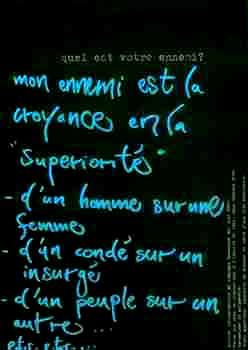 quel est votre ennemi?
mon ennemi est la
croyance en la
"superiorité"
- d'un homme sur une
femme
- d'un condé sur un
insurgé
- d'un peuple sur un
autre ...
etc. etc...